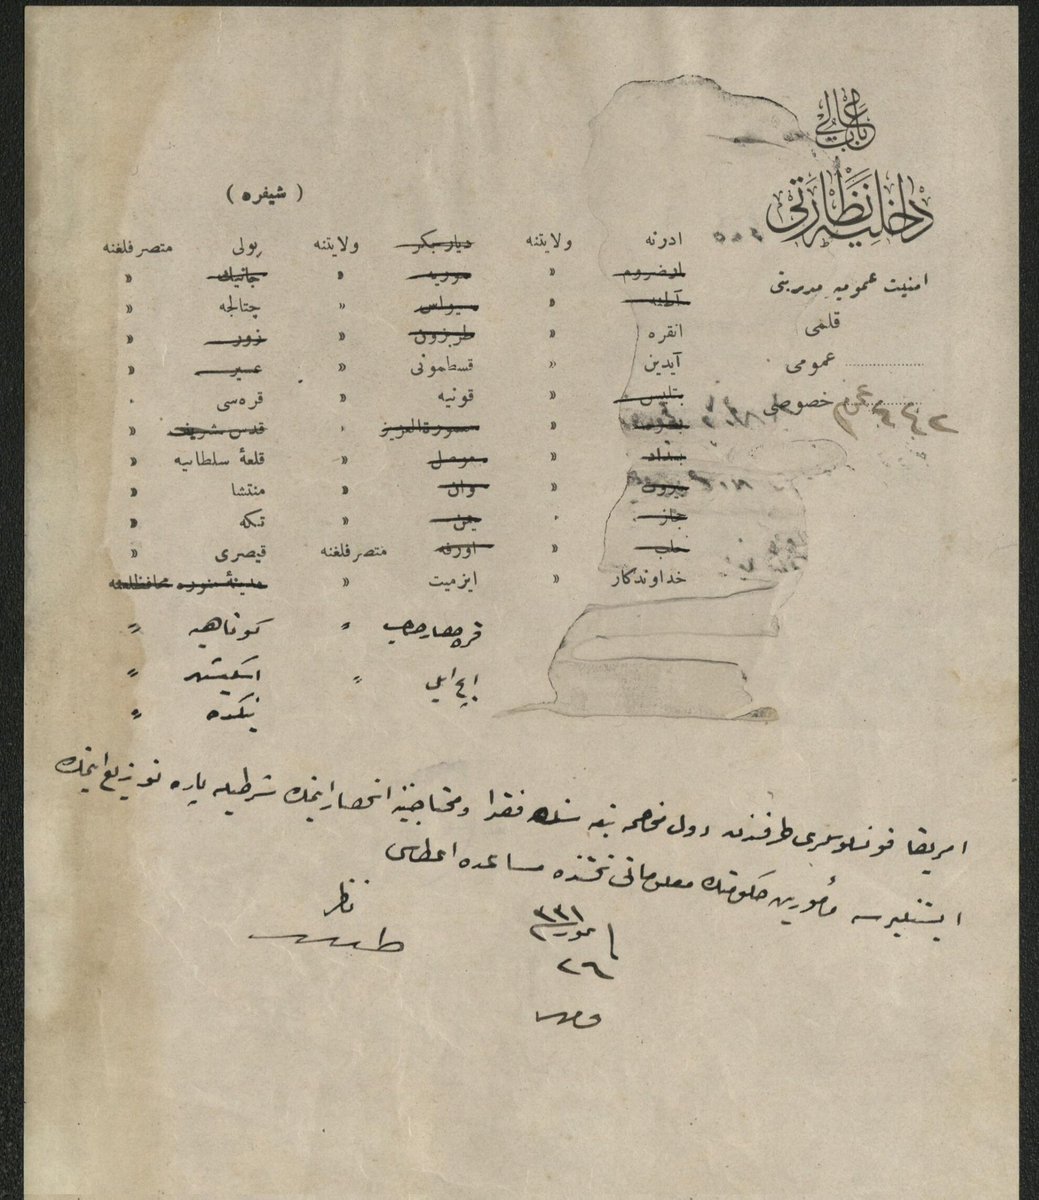 باب عالی
داخلیه نظارتی
امنیت عمومیه مدیریتی
قلمی
عمومی
خصوصی
( شیفره )
ادرنه ولایتنه دیاربكر ولایتنه بولی متصرفلغنه
ارضروم » سوریه » جانیك »
آطنه » سیواس » چتالجه »
انقره » طربزون » زور »
آیدین » قسطمونی » عسیر »
بتلیس » قونیه » قره‌سی »
بصره » معمورة العزیز » قدس شریف »
بغداد » موصل » قلعهٔ سلطانیه »
بیروت » وان » منتشا »
حجاز » یمن » تكه »
حلب » اورفه متصرفلغنه قیصری »
خداوندكار » ایزمیت » مدینهٔ منوره محافظلغنه
قره حصار صاحب » كوتاهیه »
ایچ ایلی » اسكیشهر »
نیكده »
امریقا قونسلوسلری طرفندن دول مخاصمه تبعه سنك فقرا و محتاجینه انحصار ایتمك شرطیله پاره توزیع ایتمك
ایستنیلیرسه مأمورین حكومتك معلوماتی تحتنده مساعده اعطاسی
ناظر
طلعت
٣٣١
تموز
٢٦